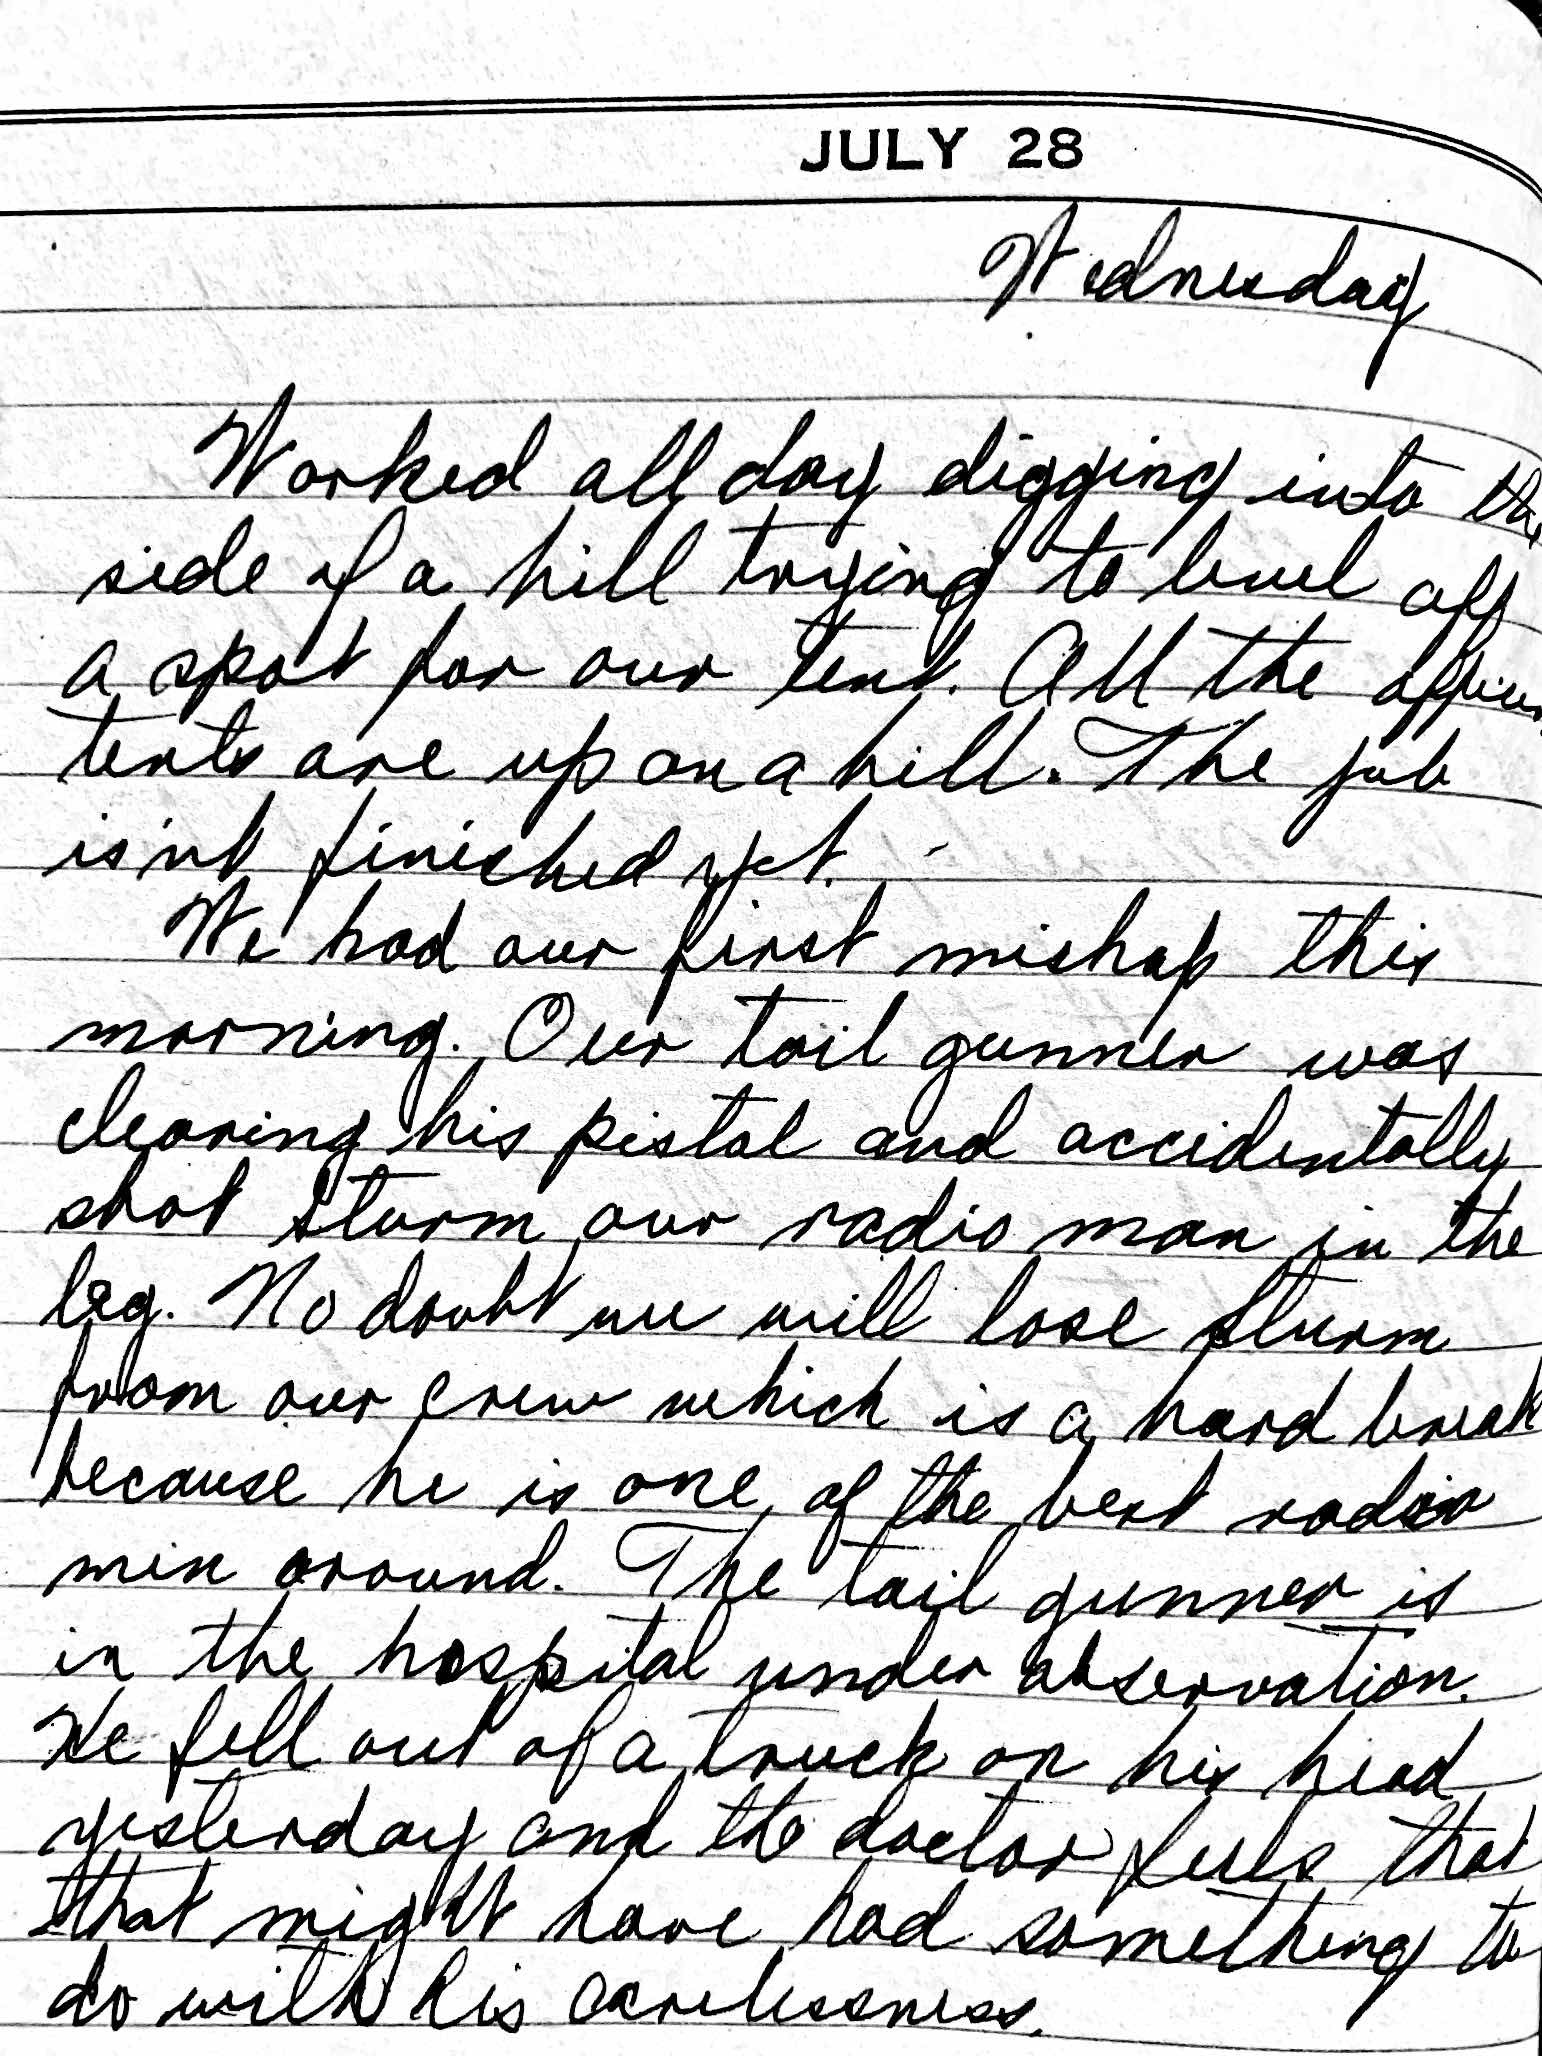 JULY 28
Wednesday
Worked all day digging into the
side of a hill trying to level off
a spot for our tent. All the officers
tents are up on a hill. The job
is'nt finished yet.
We had our first mishap this
morning. Our tail gunner was
clearing his pistol and accidentally
shot Sturm our radio man in the
leg. No doubt we will lose Sturm
from our crew which is a hard break
because he is one of the best radio
men around. The tail gunner is
in the hospital under observation.
He fell out of a truck on his head
yesterday and the doctor feels that
that might have had something to
do with his carelessness.